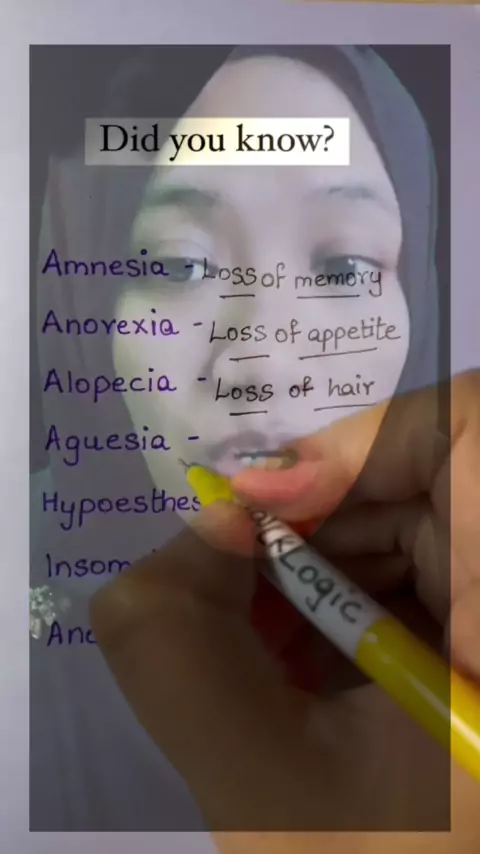 Did you know?
Amnesia - Loss of memory
Anorexia - Loss of appetite
Alopecia - Loss of hair
Aguesia -
Hypoesthes
Insom
Logic